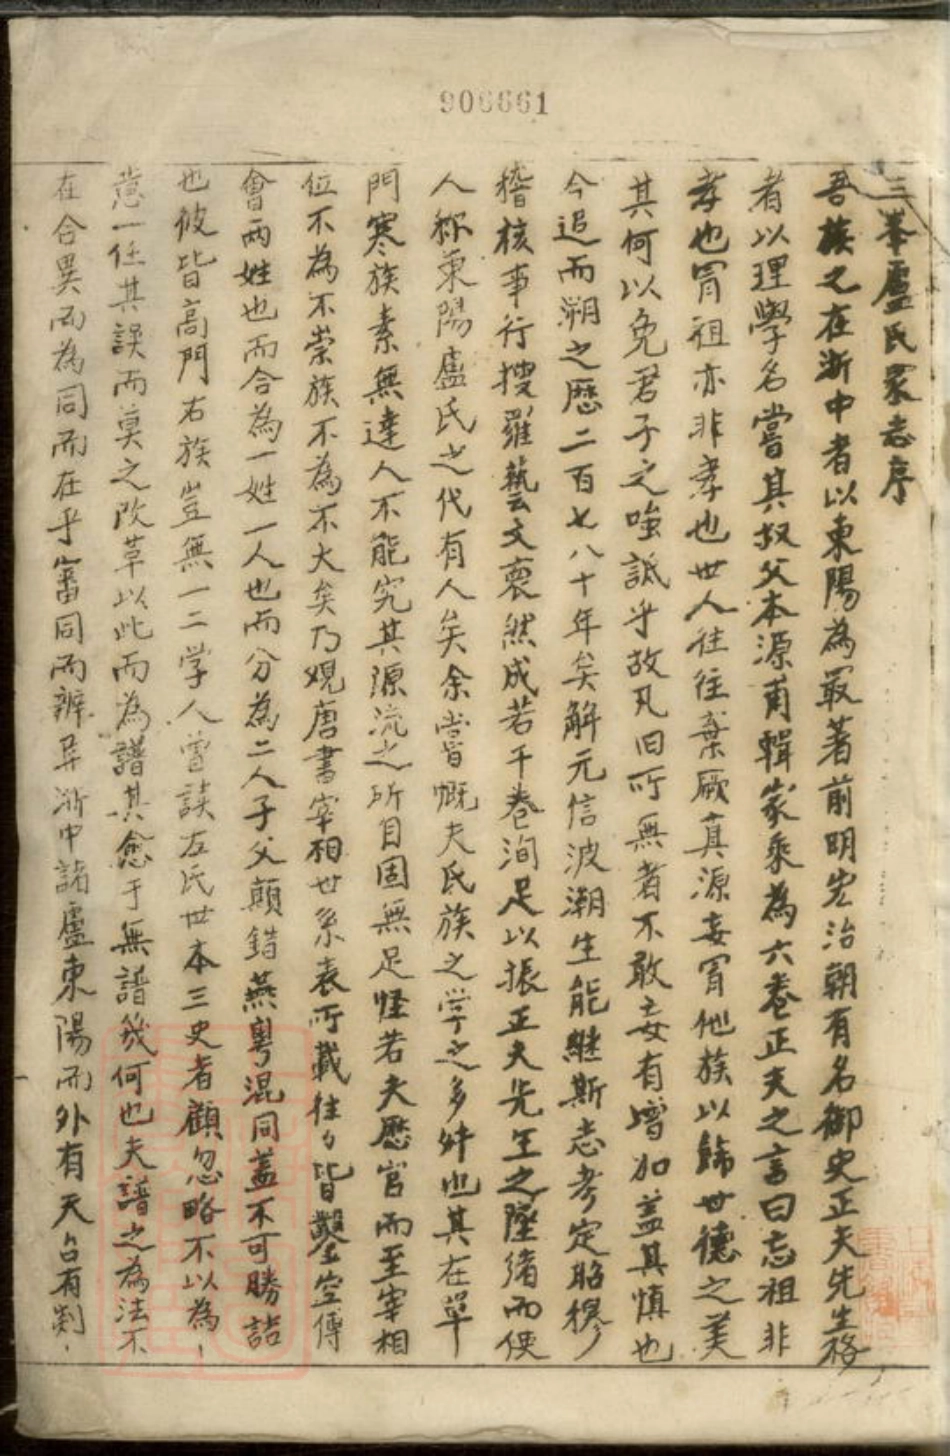 906661
三峯盧氏家志序
吾族之在浙中者以東陽為最著前明宏治朝有名御史正夫先生格
者以理學名嘗其叔父本源甫輯家乘為六卷正夫之言曰忘祖非
孝也冐祖亦非孝也世人往往棄厥真源妄冐他族以歸世德之美
其何以免君子之嗤詆乎故凡旧所無者不敢妄有增加盖其慎也
今追而溯之歷二百七八十年矣解元信波潮生能継斯志考定昭穆
稽核事行搜羅藝文裒然成若干卷洵足以振正夫先生之墜緒而使
人称東陽盧氏之代有人矣余嘗慨夫氏族之学之多舛也其在單
門寒族素無達人不能究其源流之所自固無足怪若夫歷官而至宰相
位不為不崇族不為不大矣乃观唐書宰相世系表所載徃々皆鑿空傅
會兩姓也而合為一姓一人也而分為二人子父顛錯燕粤混同盖不可勝詰
也彼皆高門右族豈無一二学人嘗読左氏世本三史者顧忽略不以為
意一任其誤而莫之改革以此而為譜其愈于無譜幾何也夫譜之為法不
在合異而為同而在乎審同而辨异浙中諸盧東陽而外有天台有剡